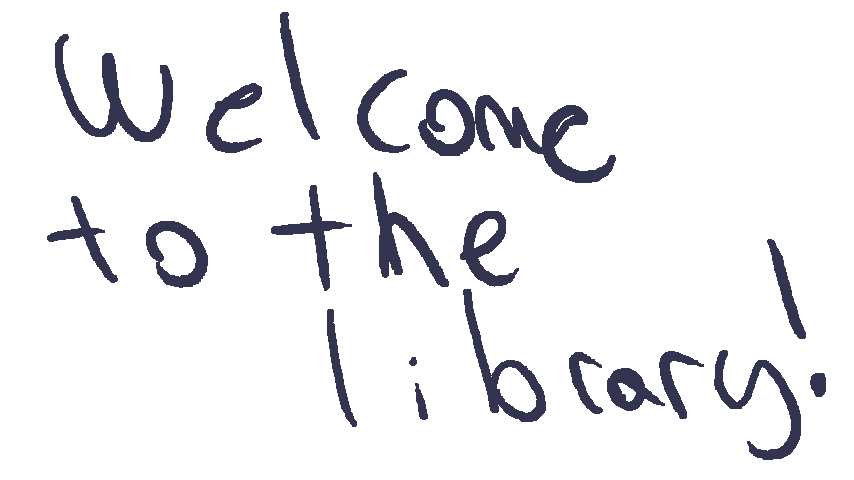 Welcome
to the
library!